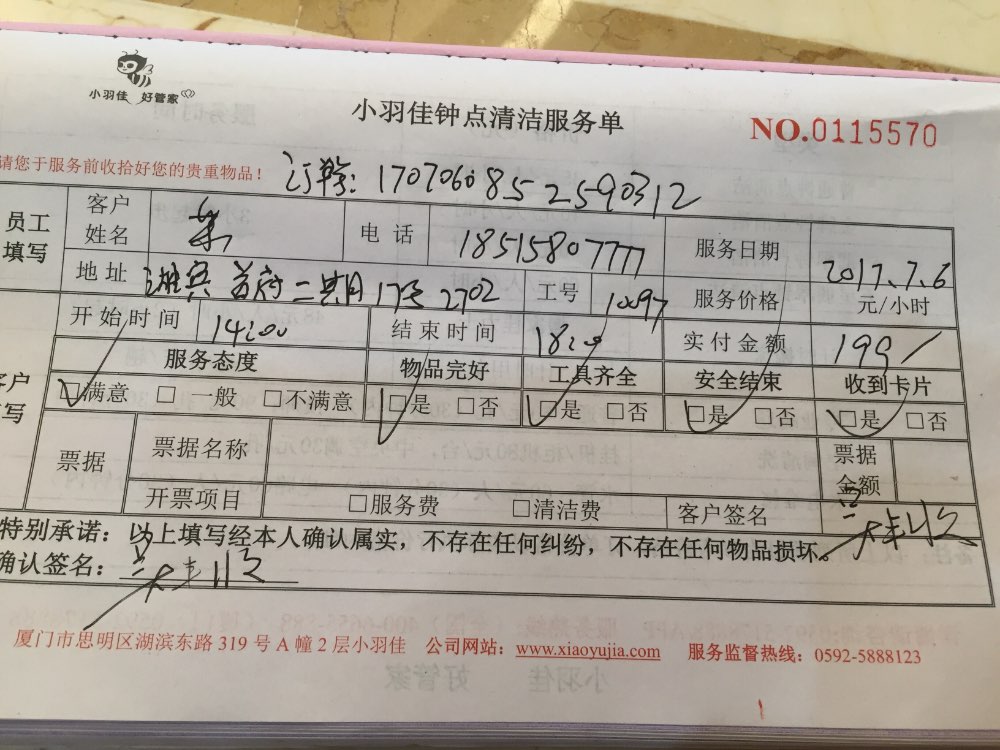 小羽佳 好管家
小羽佳钟点清洁服务单
NO.0115570
请您于服务前收拾好您的贵重物品！
1707060852590312
员工填写 客户姓名 叶 电话 18515807777 服务日期 2017.7.6
地址 二期17 2702 工号 1097 服务价格 元/小时
开始时间 14:00 结束时间 18:00 实付金额 199
客户填写 服务态度 物品完好 工具齐全 安全结束 收到卡片
☑满意 □一般 □不满意 ☑是 □否 ☑是 □否 ☑是 □否 ☑是 □否
票据 票据名称 票据金额
开票项目 □服务费 □清洁费 客户签名
特别承诺：以上填写经本人确认属实，不存在任何纠纷，不存在任何物品损坏。
确认签名：
厦门市思明区湖滨东路 319 号 A 幢 2 层小羽佳 公司网站：www.xiaoyujia.com 服务监督热线：0592-5888123